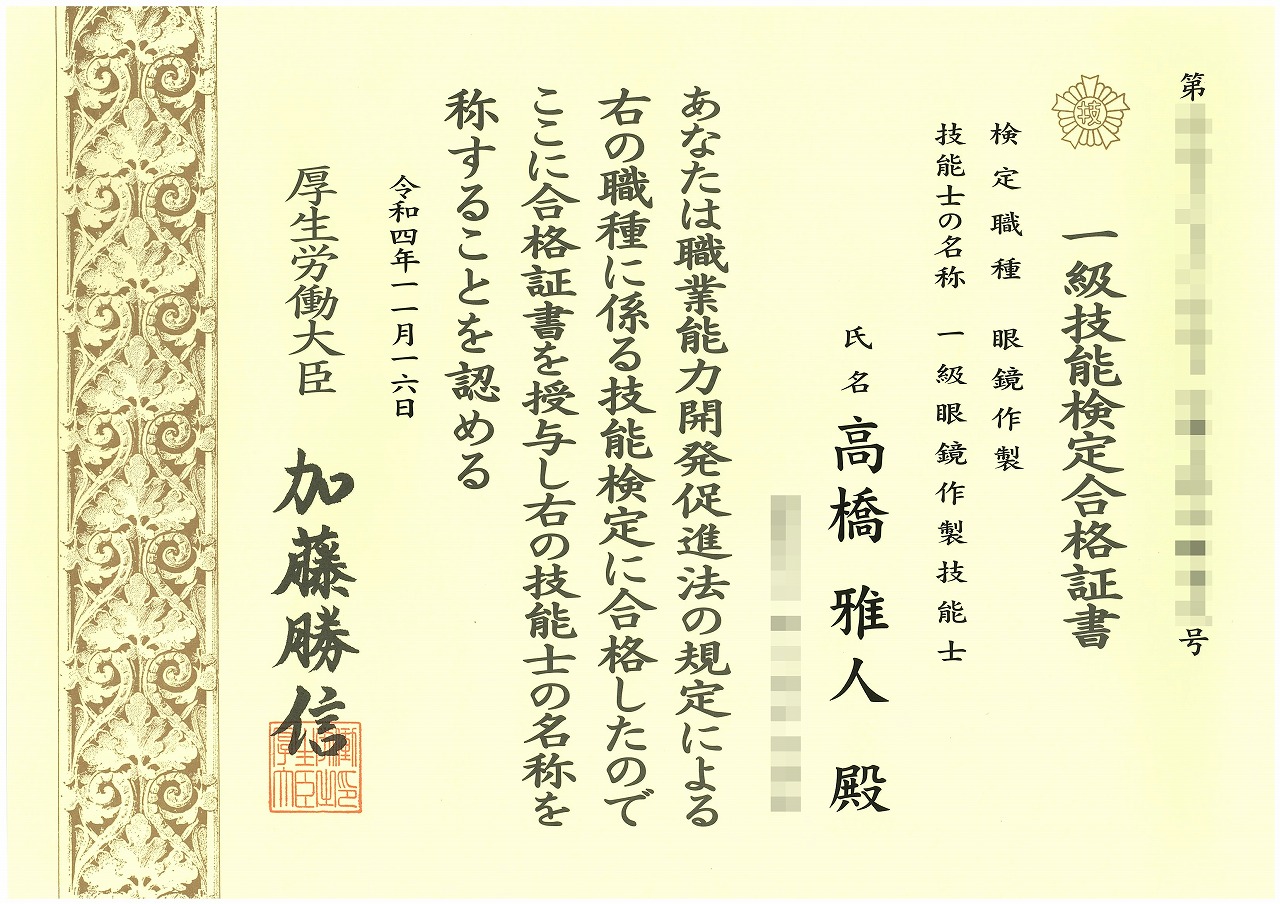 第
号
技
一級技能検定合格証書
検定職種 眼鏡作製
技能士の名称 一級眼鏡作製技能士
氏名 高橋 雅人 殿
あなたは職業能力開発促進法の規定による
右の職種に係る技能検定に合格したので
ここに合格証書を授与し右の技能士の名称を
称することを認める
令和四年一一月一六日
厚生労働大臣 加藤勝信